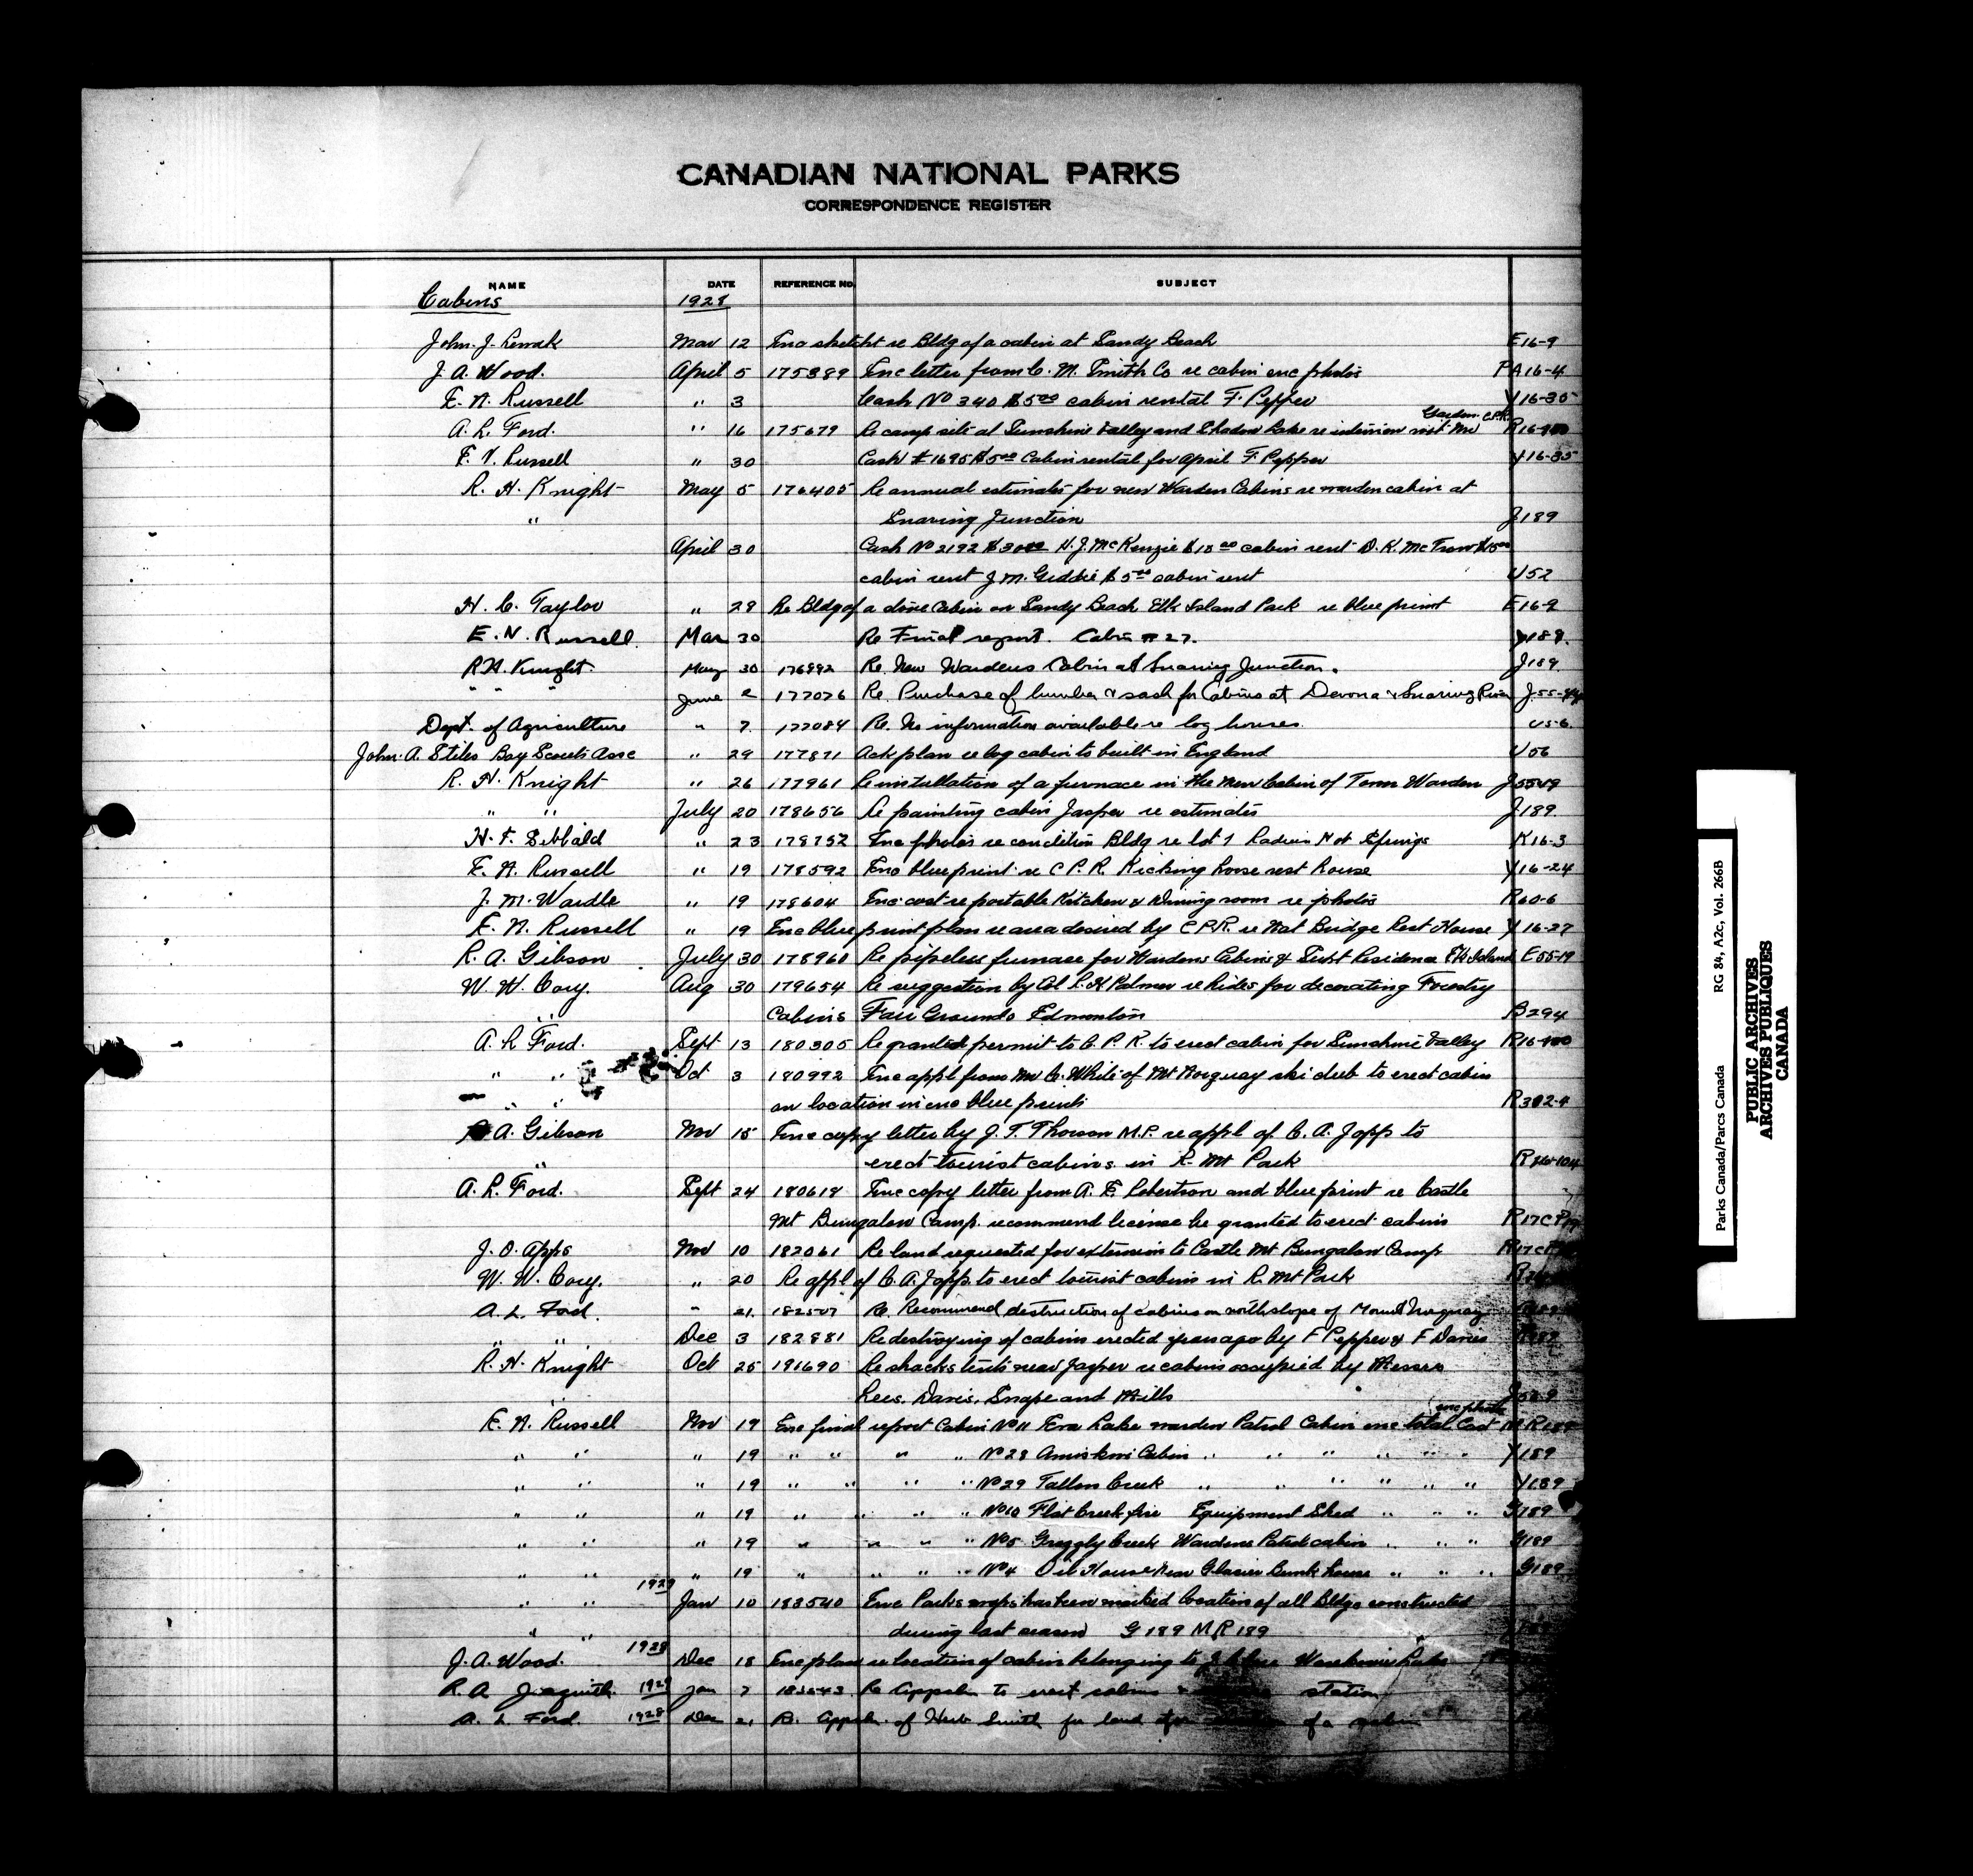 CANADIAN NATIONAL PARKS
CORRESPONDENCE REGISTER
NAME DATE REFERENCE NO. SUBJECT
Cabins 1928
John. J. Mar 12 Enc re Bldg of a cabin at Sandy Beach E16-9
J. A. Wood. April 5 175389 Enc letter from C. M. Smith Co re cabin enc photos PA16-4
E. N. Russell " 3 Cash No 340 $5.00 cabin rental F. Pepper Y16-35
Gordon C.P.R.
A. L. Ford. " 16 175679 Re camp site at Sunshine Valley and Shadow Lake re Mr R16-
E. N. Russell " 30 Cash # 1695 $5.00 Cabin rental for April F Pepper Y16-35
R. H. Knight May 5 176405 Re annual estimates for new Warden Cabins re warden cabin at
" Snaring Junction J189
April 30 Cash No 2192 H. J. McKenzie cabin rent D. K. $15.00
cabin rent J M. Geddie $5.00 cabin rent U52
H. C. Taylor " 28 Re Bldg of a cabin on Sandy Beach Elk Island Park re blue print E16-9
E. N. Russell. Mar 30 Re Final report. Cabin # 27. Y189.
R. H. Knight. May 30 176892 Re. New Wardens Cabin at Snaring Junction. J189.
" " " June 2 177076 Re. Purchase of lumber & sash for Cabins at Devona & Snaring River J.55-
Dept. of Agriculture " 7. 177084 Re. No information available re log houses. U56.
John. A. Stiles Boy Scouts Assc " 29 177871 Ack plan re log cabin to built in England U56
R. H. Knight " 26 177961 Re installation of a furnace in the new Cabin of Town Warden J55-19
" " July 20 178656 Re painting cabin Jasper re estimates J189.
H. F. Sibbald " 23 178752 Enc photos re condition Bldg re lot 1 Radium Hot Springs K16-3
E. N. Russell " 19 178592 Enc blue print re C P. R. Kicking horse rest house Y16-24
J. M. Wardle " 19 178604 Enc cost re portable Kitchen & Dining room re photos R60-6
E. N. Russell " 19 Enc blue print plan re area desired by C P.R. re Nat Bridge Rest House Y16-27
R. A. Gibson July 30 178960 Re pipeless furnace for Wardens Cabins & Supt Residence Elk Island E55-19
W. W. Cory. Aug 30 179654 Re suggestion by Col Palmer re hides for decorating Forestry
" Cabins Fair Grounds Edmonton B294
A. L Ford. Sept 13 180305 Re granted permit to C. P. R. to erect cabin for Sunshine Valley R16-
" " Oct 3 180992 Enc appl from Mr C. White of Mt Norquay ski club to erect cabin
" " on location in enc blue prints R302-4
R. A. Gibson Nov 15 Enc copy letter by J. T. Thorson M.P. re appl of C. A. Jopp to
" erect tourist cabins. in R. Mt Park
A. L. Ford. Sept 24 180618 Enc copy letter from A. E. Robertson and blue print re Castle
Mt Bungalow Camp. recommend license be granted to erect cabins
J. O. Apps Nov 10 182061 Re land requested for extension to Castle Mt Bungalow Camp
W. W. Cory. " 20 Re appl of C. A. Jopp. to erect tourist cabins in R. Mt Park
A. L. Ford. " 21. 182507 Re. Recommend destruction of cabins on north slope of Mount Norquay
" " Dec 3 182881 Re destroying of cabins erected years ago by F Pepper & F Davis
R. H. Knight Oct 25 191690 Re shacks tents near Jasper re cabins occupied by Messrs
" Rees. Davis. Snape and Mills
enc photo
E. N. Russell Nov 19 Enc final report Cabin No 11 Eva Lake warden Patrol Cabin enc total Cost M R 189
" " " 19 " " " " No 28 Amiskwi Cabin " " " " " " Y189
" " " 19 " " " " No 29 Tallon Creek " " " " " " Y189
" " " 19 " " " " No 10 Flat Creek fire Equipment Shed " " " G189
" " " 19 " " " " No 5 Grizzly Creek Wardens Patrol cabin " " " G189
" " " 19 " " " " No 4 Oil House near Glacier Bunk house " " " G189
1929
" " Jan 10 183540 Enc Parks maps has been marked location of all Bldgs constructed
" " during last season G 189 M R 189
J. A. Wood. 1928 Dec 18 Enc plan re location of cabin belonging to
R. A. 1929 Jan 7 Re to erect cabins station
A. L. Ford. 1928 Dec 21 Re. of Herb Smith for land for of a cabin
Parks Canada/Parcs Canada RG 84, A2c, Vol. 266B
PUBLIC ARCHIVES
ARCHIVES PUBLIQUES
CANADA